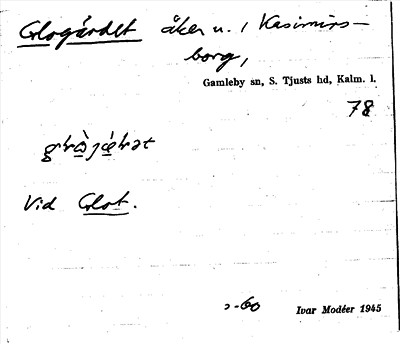 Glogärdet åker u. / Kasimirs-
borg,
Gamleby sn, S. Tjusts hd, Kalm. l.
78
Vid Glot.
2-60 Ivar Modéer 1945